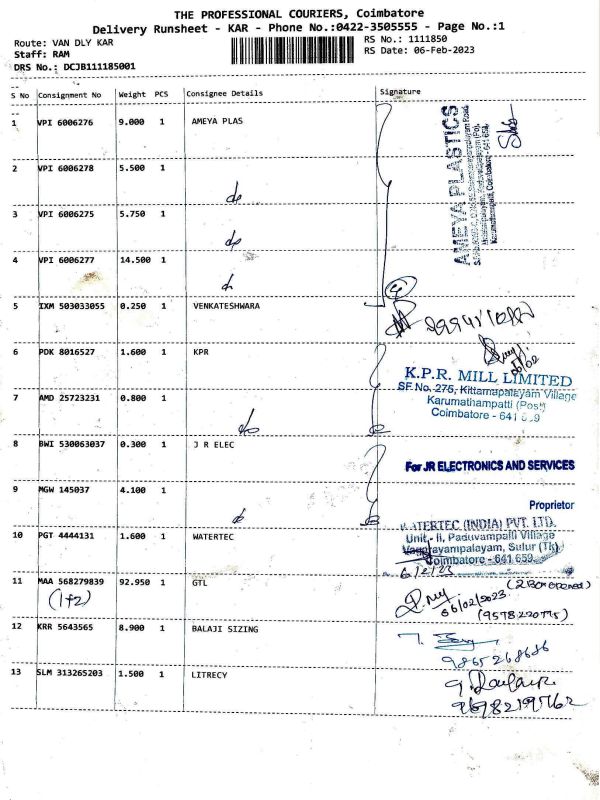 THE PROFESSIONAL COURIERS, Coimbatore
Delivery Runsheet - KAR - Phone No.:0422-3505555 - Page No.:1
Route: VAN DLY KAR
RS No.: 1111850
Staff: RAM
RS Date: 06-Feb-2023
DRS No.: DCJB111185001
S No Consignment No Weight PCS Consignee Details Signature
1 VPI 6006276 9.000 1 AMEYA PLAS
AMEYA PLASTICS
2 VPI 6006278 5.500 1
do
3 VPI 6006275 5.750 1
do
4 VPI 6006277 14.500 1
4
5 IXM 503033055 0.250 1 VENKATESHWARA
6 PDK 8016527 1.600 1 KPR
K.P.R. MILL LIMITED
SF No. 275, Kittampalayam Village
7 AMD 25723231 0.800 1
Karumathampatti (Post)
Coimbatore - 641
do
8 BWI 530063037 0.300 1 J R ELEC
For JR ELECTRONICS AND SERVICES
9 MGW 145037 4.100 1
Proprietor
do
WATERTEC (INDIA) PVT. LTD.
10 PGT 4444131 1.600 1 WATERTEC
Unit - II, Paduvampalli Village
Vagarayampalayam, Sulur (Tk)
Coimbatore - 641 659
6/2/23
11 MAA 568279839 92.950 1 GTL
(1+2)
06/02/2023
(9578220775)
12 KRR 5643565 8.900 1 BALAJI SIZING
9865268686
13 SLM 313265203 1.500 1 LITRECY